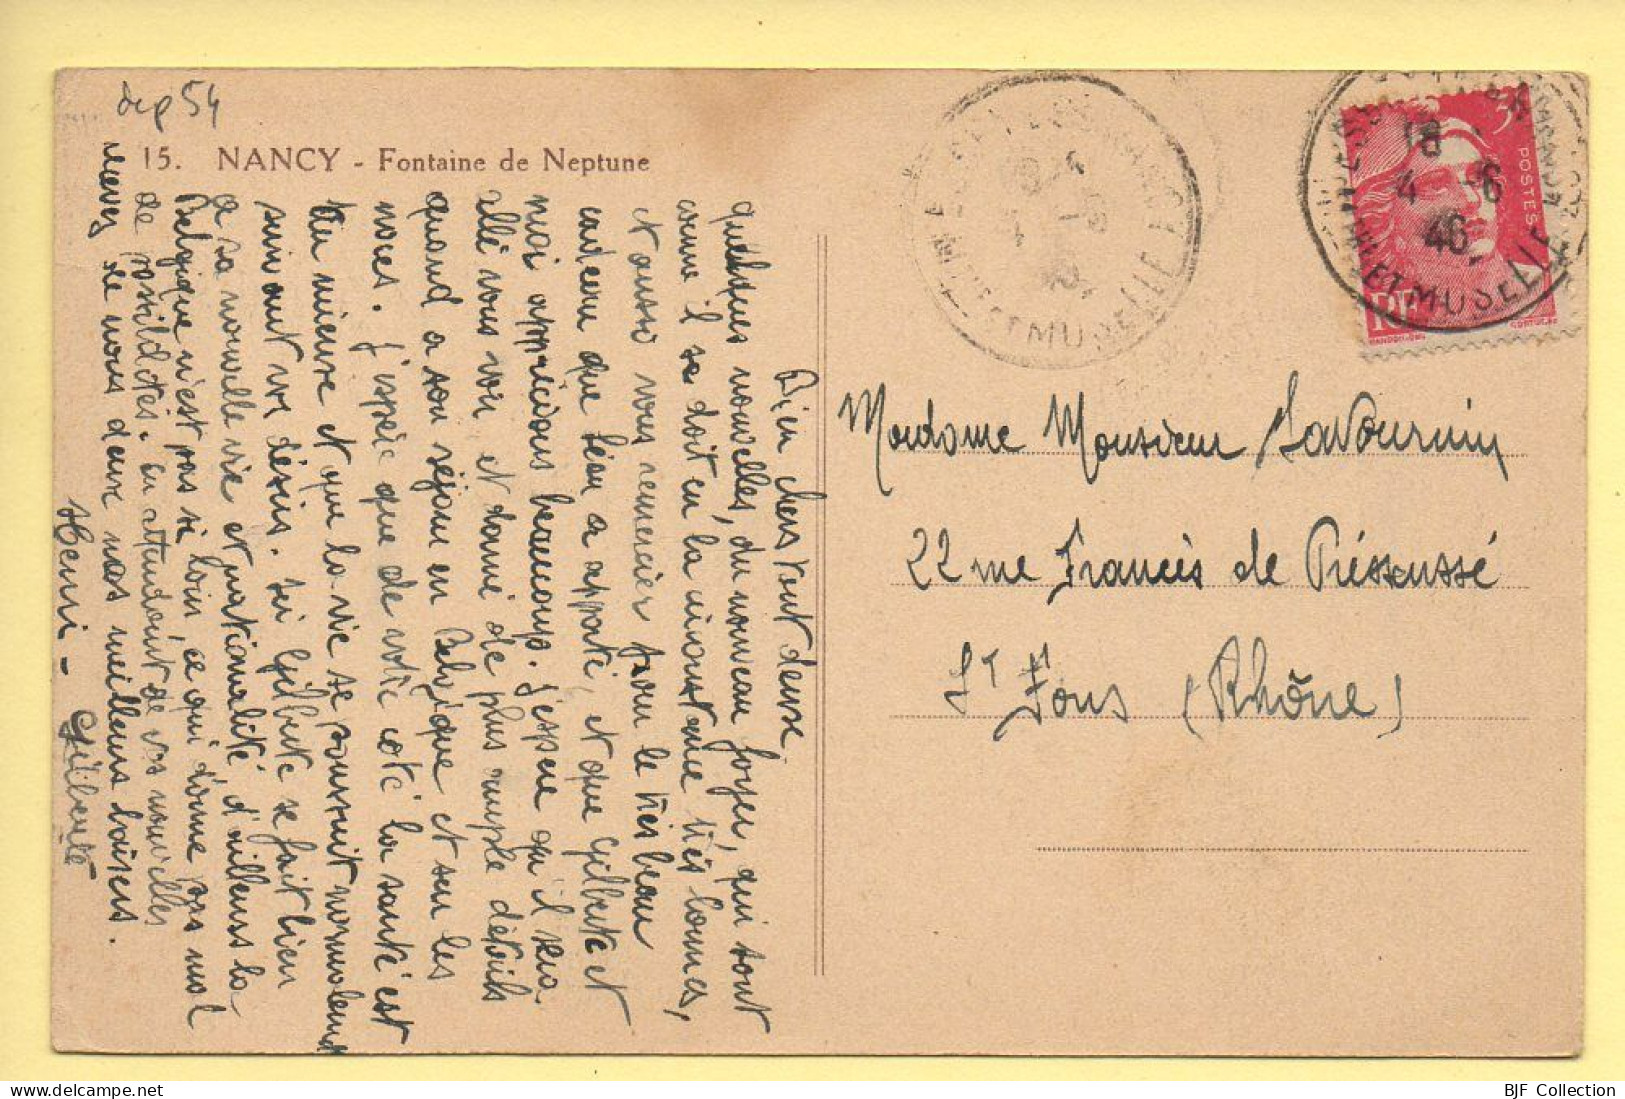 dep 54
15. NANCY - Fontaine de Neptune
Bien chers tout deux
quelques nouvelles, du nouveau foyer, qui sont
comme il se doit en la circonstance très bonnes,
et aussi vous remercier pour le très beau
cadeau que Léon a apporté, et que Gilberte et
moi apprécions beaucoup. J'espère qu'il sera
allé vous voir et donné de plus ample détails
quand a son séjour en Belgique et sur les
noces. J'espère que de votre coté la santé est
au mieux et que la vie se poursuit normalement
suivant vos désirs. Ici Gilberte se fait bien
a sa nouvelle vie et nationalité, d'ailleurs la
Belgique n'est pas si loin, ce qui donne pas mal
de possibilités. En attendant de vos nouvelles
recevez de nous deux nos meilleurs baisers.
Henri - Gilberte
Madame Monsieur Lavournin
22 rue Francis de Préssensé
St Fons (Rhône)
18
4 - 6
46
MTHE ET MOSELLE
POSTES
RF
GANDON
BJF Collection